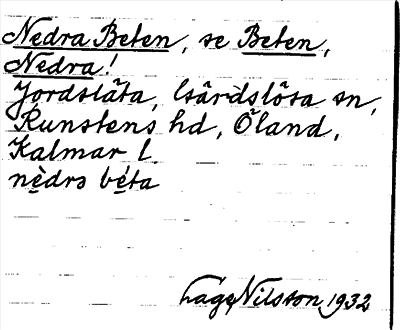 Nedra Beten, se Beten,
Nedra!
Jordsläta, Gärdslösa sn,
Runstens hd, Öland,
Kalmar l.
nèdrə béta
Lage Nilsson 1932